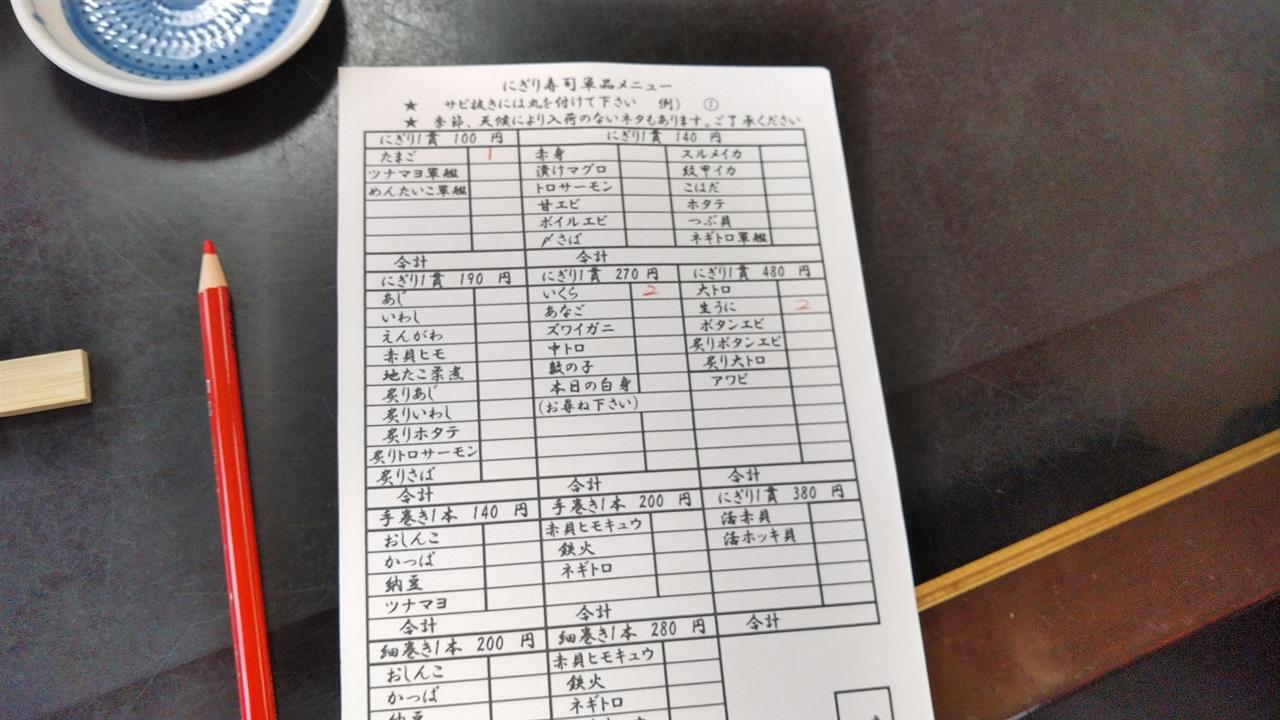 にぎり寿司単品メニュー
★ サビ抜きには丸を付けて下さい 例) ①
★ 季節、天候により入荷のないネタもあります。ご了承ください
にぎり1貫 100 円 にぎり1貫 140 円
たまご 1 赤身 スルメイカ
ツナマヨ軍艦 漬けマグロ 紋甲イカ
めんたいこ軍艦 トロサーモン こはだ
甘エビ ホタテ
ボイルエビ つぶ貝
〆さば ネギトロ軍艦
合計 合計
にぎり1貫 190 円 にぎり1貫 270円 にぎり1貫 480 円
あじ いくら 2 大トロ
いわし あなご 生うに 2
えんがわ ズワイガニ ボタンエビ
赤貝ヒモ 中トロ 炙りボタンエビ
地たこ柔煮 数の子 炙り大トロ
炙りあじ 本日の白身 アワビ
炙りいわし (お尋ね下さい)
炙りホタテ
炙りトロサーモン
炙りさば
合計 合計 合計
手巻き1本 140 円 手巻き1本 200 円 にぎり1貫 380 円
おしんこ 赤貝ヒモキュウ 活赤貝
かっぱ 鉄火 活ホッキ貝
納豆 ネギトロ
ツナマヨ
合計 合計 合計
細巻き1本 200 円 細巻き1本 280 円
おしんこ 赤貝ヒモキュウ
かっぱ 鉄火
納豆 ネギトロ